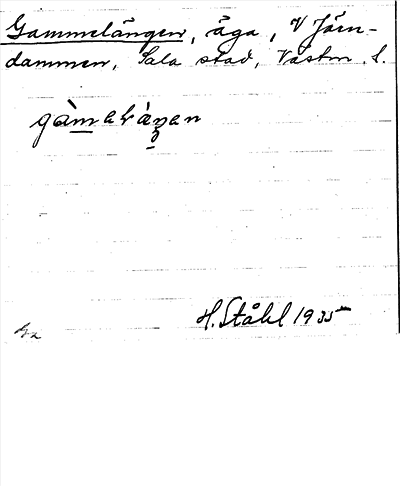 Gammelängen, äga, V Järn-
dammen, Sala stad, Västm. l.
H. Ståhl 1935